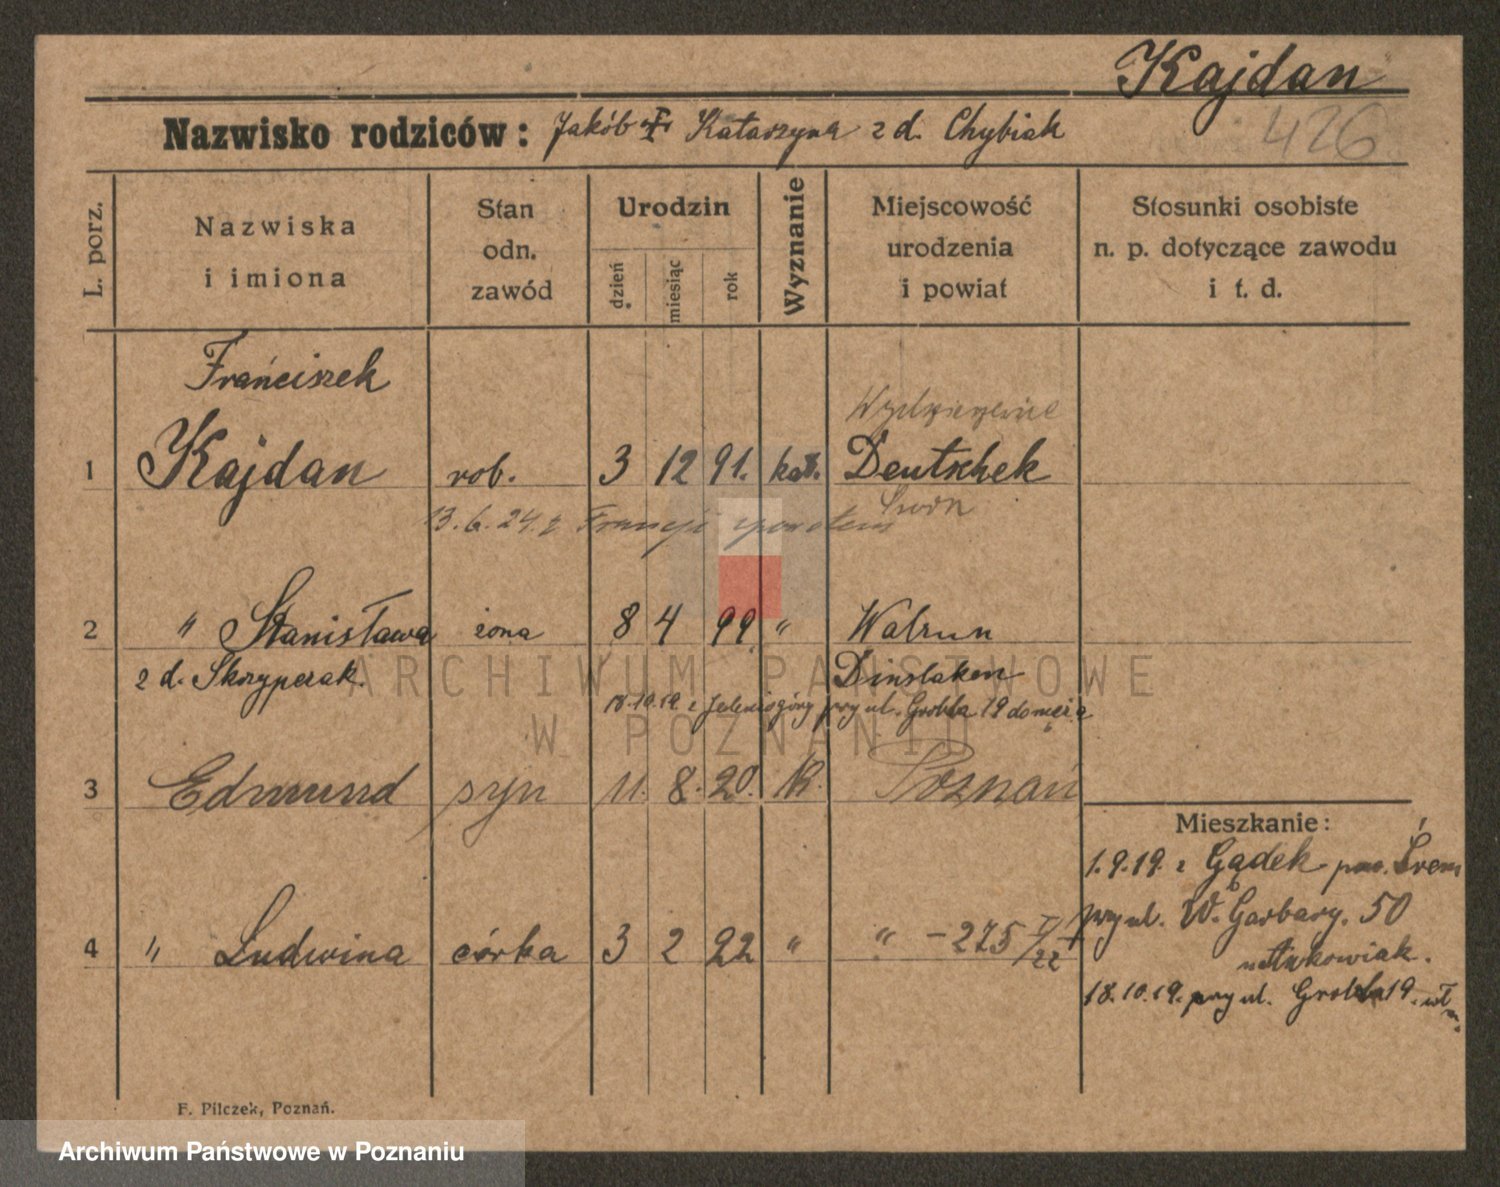 Kajdan
426
Nazwisko rodziców: Jakób Katarzyna z d. Chybiak
L. porz.
Nazwiska i imiona
Stan odn. zawód
Urodzin
dzień
miesiąc
rok
Wyznanie
Miejscowość urodzenia i powiat
Stosunki osobiste n. p. dotyczące zawodu i t. d.
Franciszek
1 Kajdan rob. 3 12 91. kat. Deutschek
13.6.24. z Francji
2 " Stanisława żona 8 4 99. " Walrun
z d. Skrzypczak. Dinslaken
18.10.19 z Jeleniogóry przy ul. Grobla 19 do męża
3 Edmund syn 11. 8. 20. k. Poznań
Mieszkanie:
1.9.19. z Gądek pow. Śrem
przy ul. W. Garbary. 50
4 " Ludwina córka 3 2 22 " " – 275
18.10.19. przy ul. Grobla 19.
F. Pilczek, Poznań.
ARCHIWUM PAŃSTWOWE
W POZNANIU
Archiwum Państwowe w Poznaniu